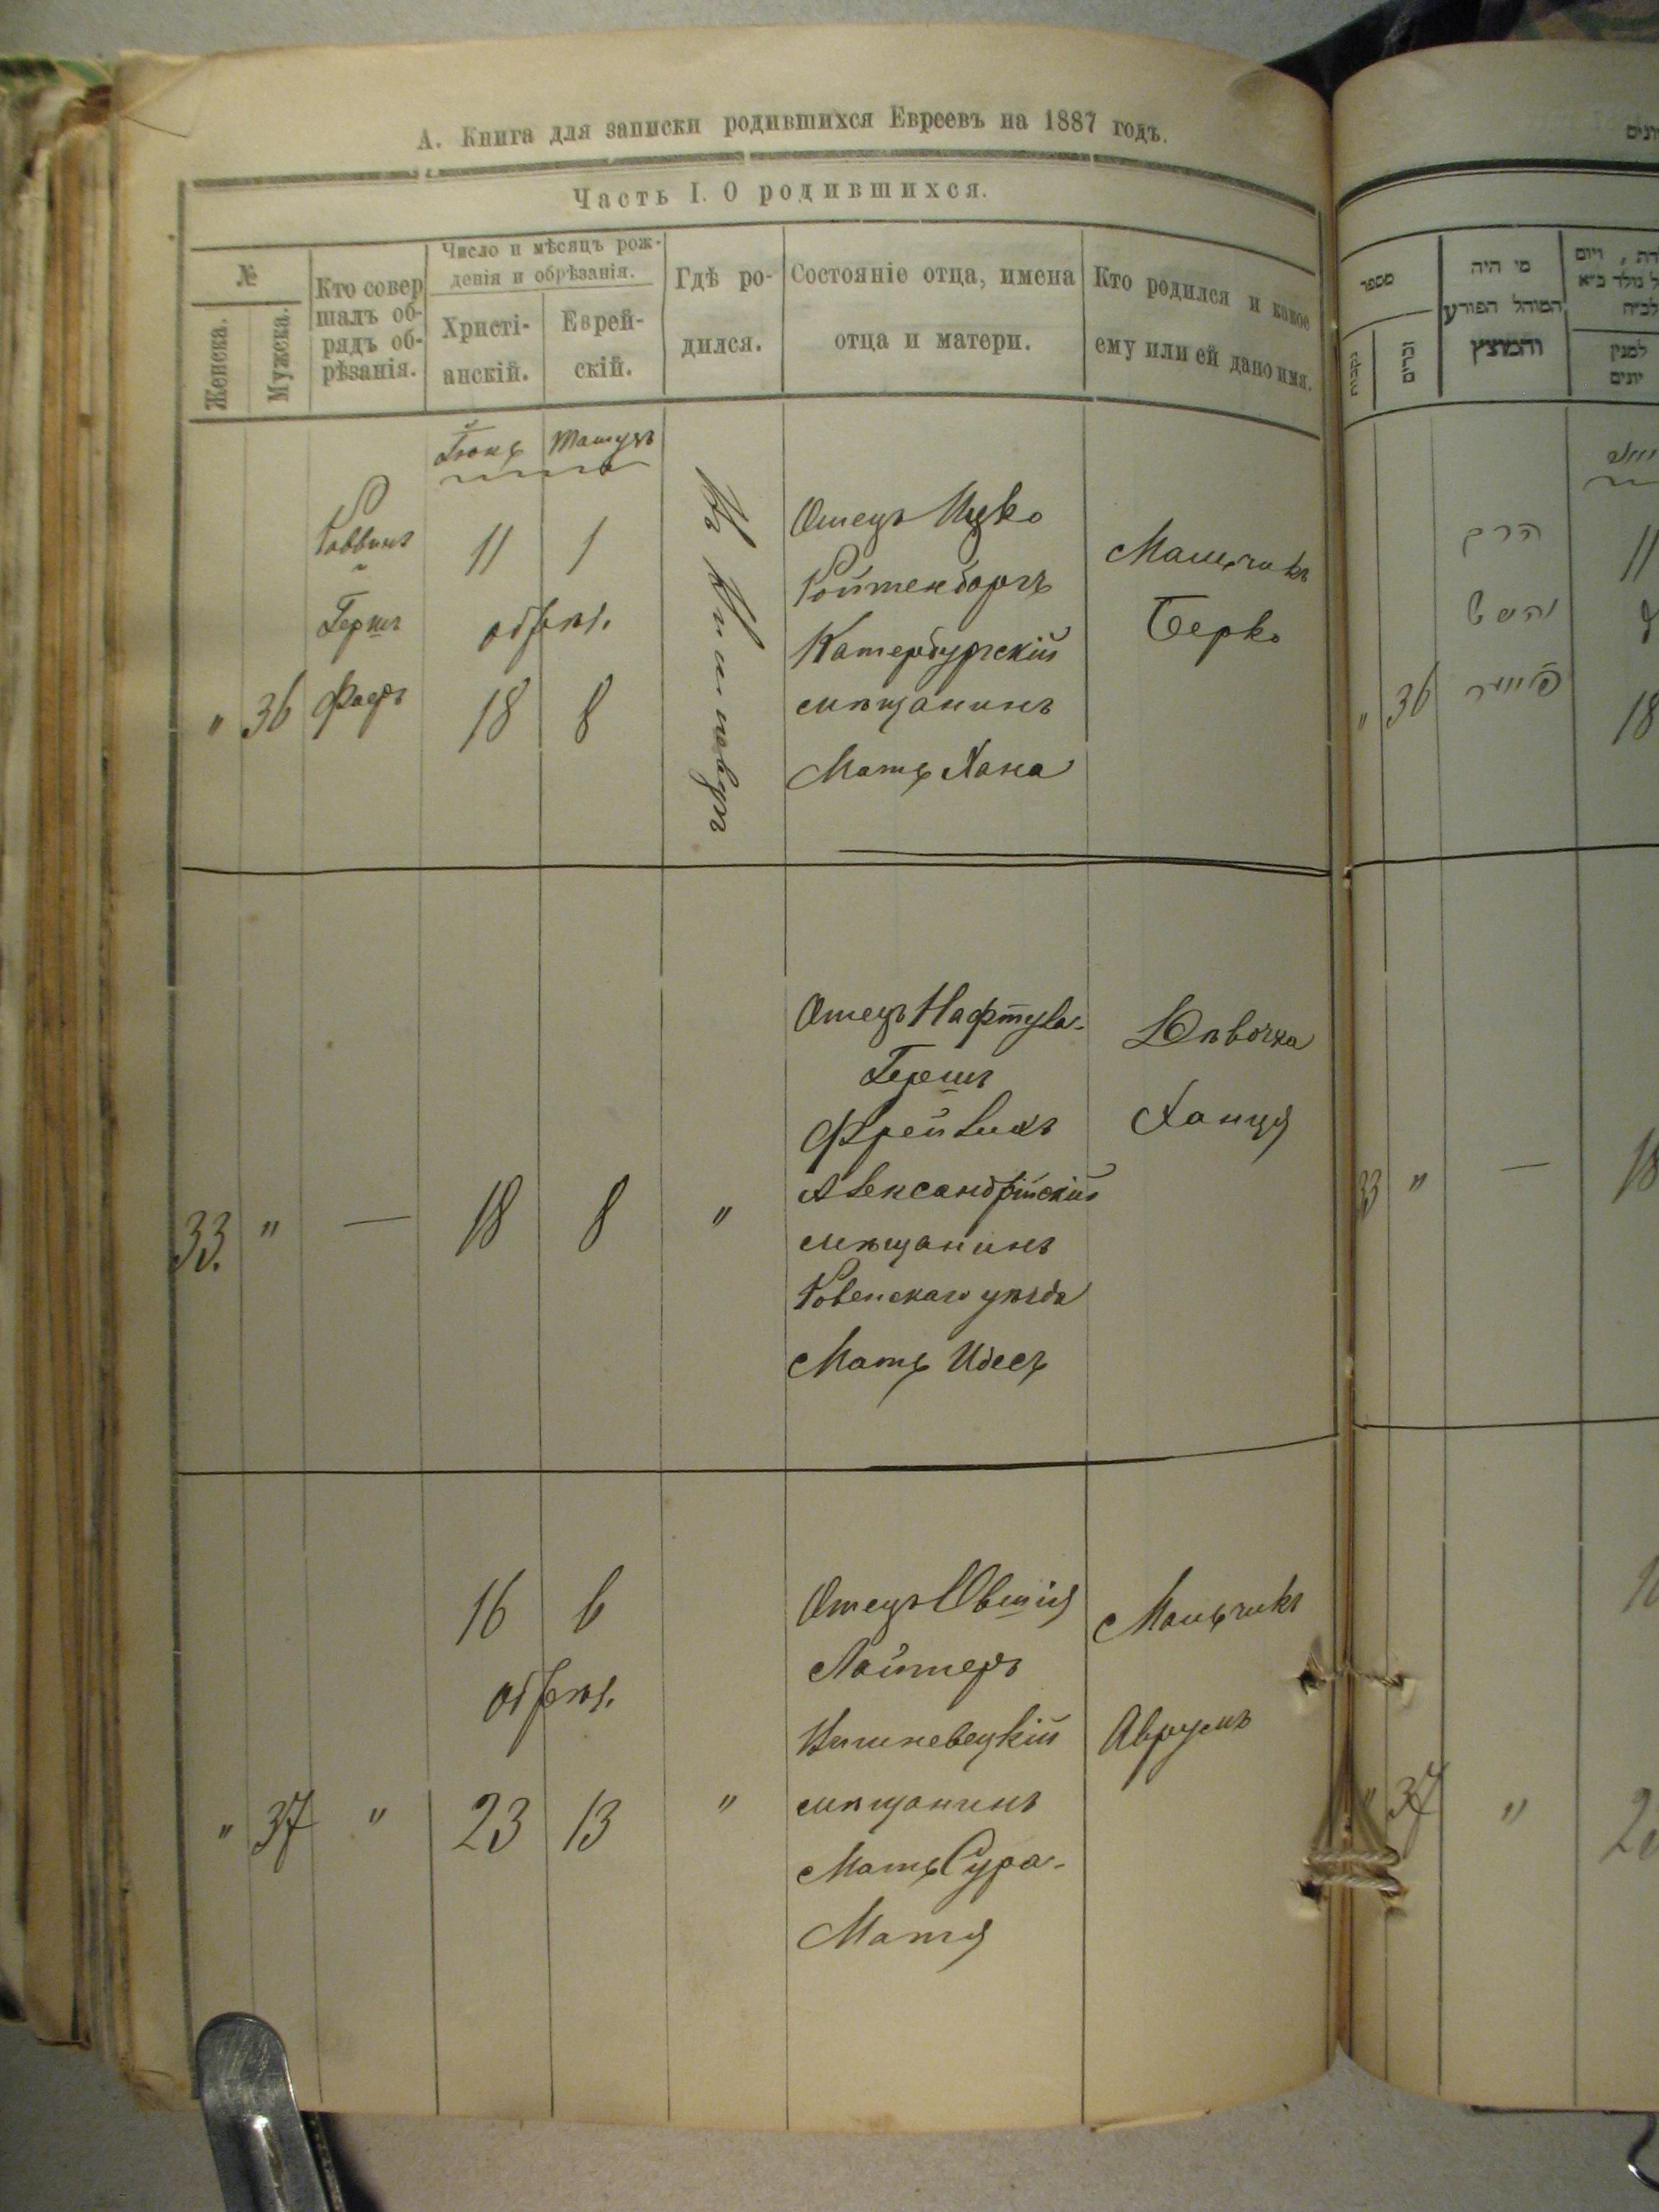 А. Книга для записки родившихся Евреевъ на 1887 годъ.
Часть I. О родившихся.
№
Женска.
Мужска.
Кто совер
шалъ об-
рядъ об-
рѣзанія.
Число и мѣсяцъ рож-
денія и обрѣзанія.
Христі-
анскій.
Еврей-
скій.
Гдѣ ро-
дился.
Состояніе отца, имена
отца и матери.
Кто родился и какое
ему или ей дано имя.
Іюнь Тамузъ
Раввинъ
Гершъ
Фаеръ
" 36
11 1
обрѣз.
18 8
Отецъ Ицко
Ройтенбаргъ
Катербургскій
мѣщанинъ
Мать Хана
Мальчикъ
Берко
33. " — 18 8 "
Отецъ Нафтула-
Гершъ
Александрійскій
мѣщанинъ
Ровенскаго уѣзда
Мать Идесъ
Дѣвочка
Ханця
" 37 "
16 6
обрѣз.
23 13
"
Отецъ Овшія
Лойтеръ
Вишневецкій
мѣщанинъ
Мать Сура-
Матя
Мальчикъ
Аврумъ
מספר
נקבות
זכרים
מי היה
המוהל הפורע
והמוצץ
למנין
יונים
הרב
" 36
11
18
33 " — 18
" 37 "